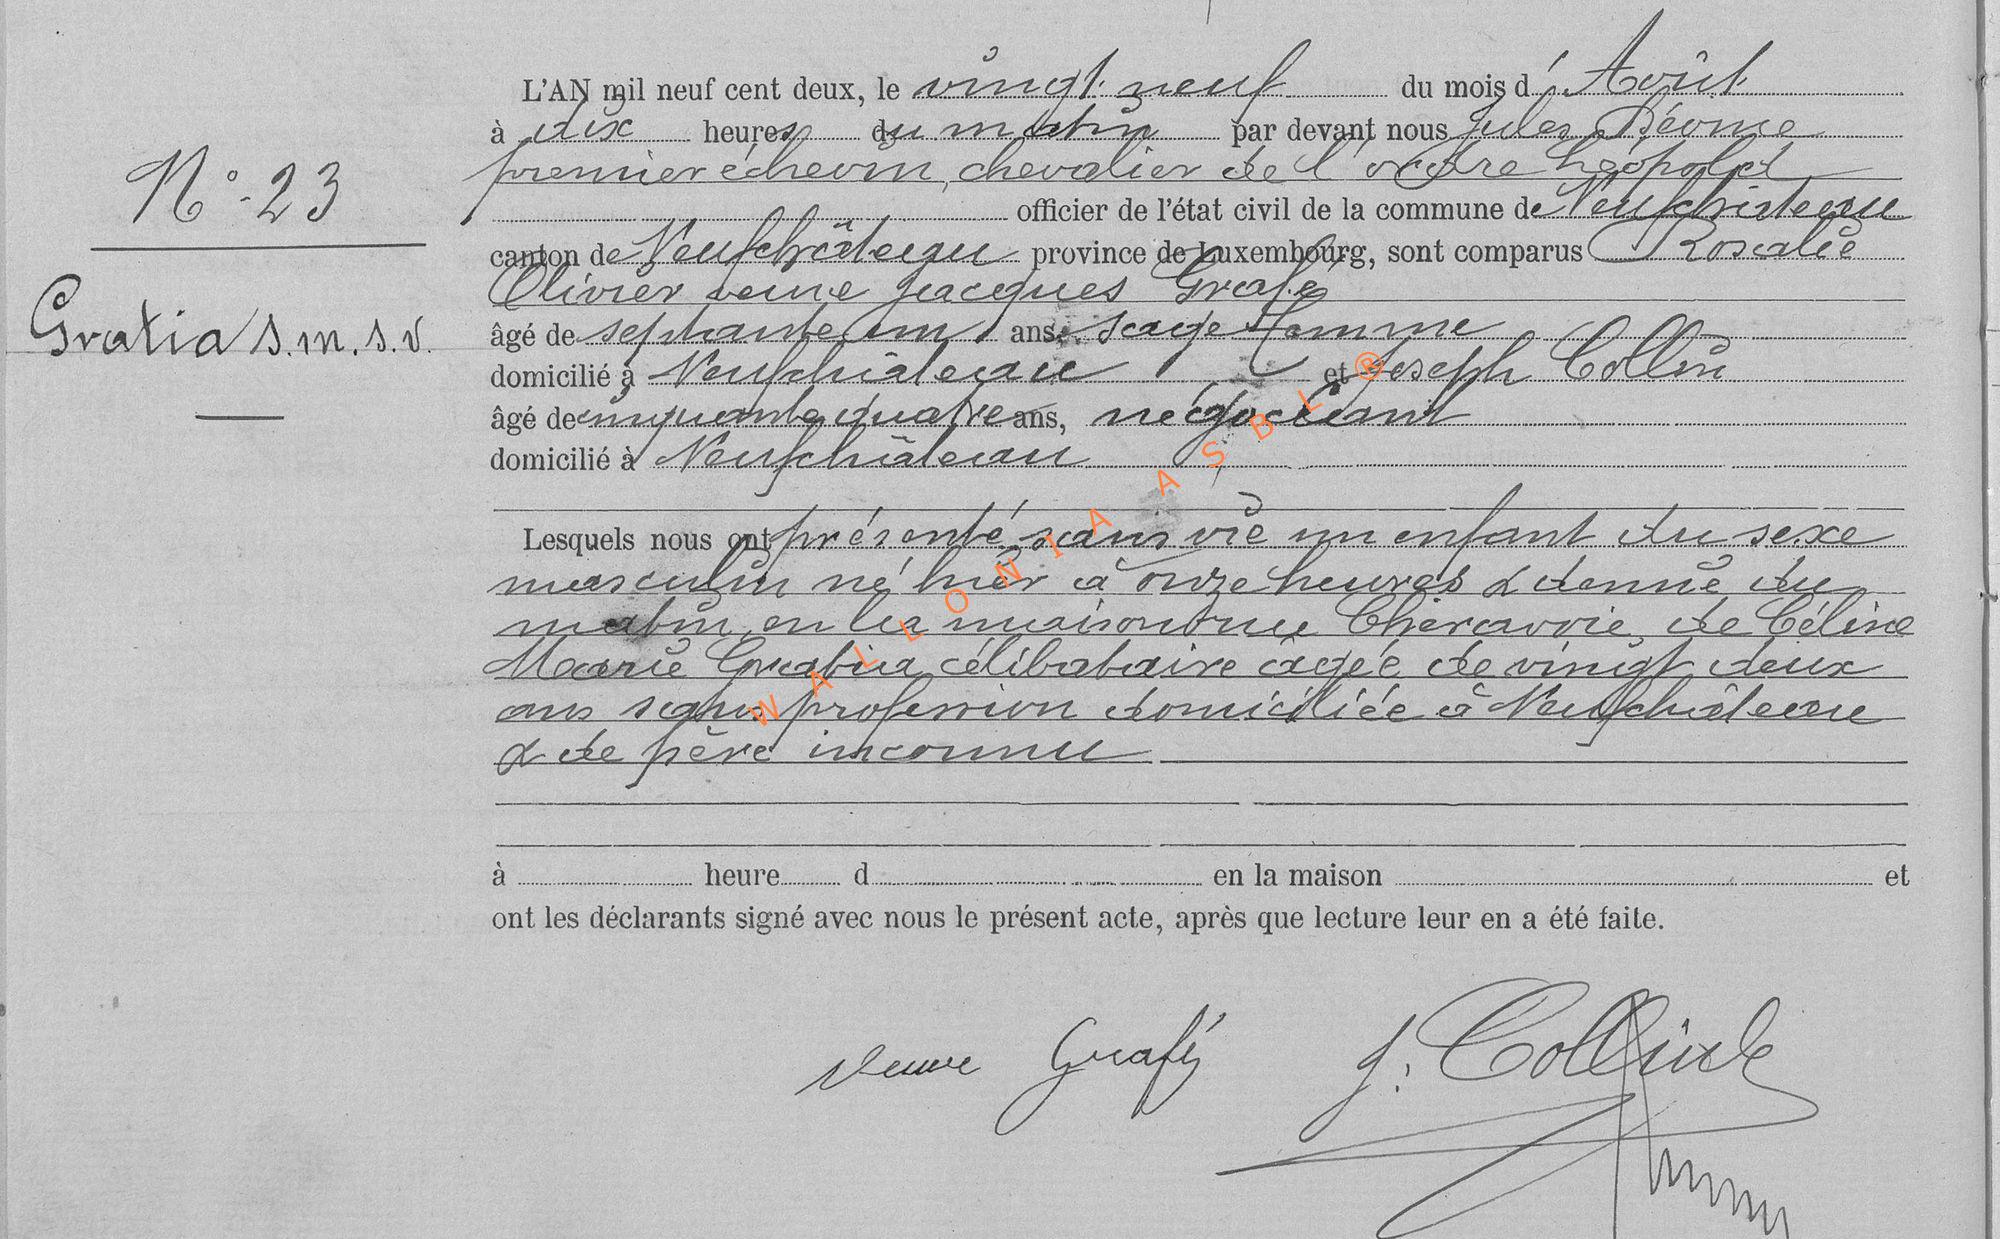 L'AN mil neuf cent deux, le vingt neuf du mois d' Août
à dix heures du matin par devant nous Jules
premier échevin, chevalier de l'ordre Léopold
officier de l'état civil de la commune de Neufchâteau
canton de Neufchâteau province de Luxembourg, sont comparus Rosalie
Olivier veuve Jacques Grafé
âgé de septante un ans, sage femme
domicilié à Neufchâteau et Joseph Collin
âgé de cinquante quatre ans, négociant
domicilié à Neufchâteau
N° 23
Gratia s.m.s.v.
Lesquels nous ont présenté sans vie un enfant du sexe
masculin né hier à onze heures & demie du
matin, en la maison rue de Céline
Marie Gratia, célibataire âgée de vingt deux
ans sans profession domiciliée à Neufchâteau
& de père inconnu
à heure d en la maison et
ont les déclarants signé avec nous le présent acte, après que lecture leur en a été faite.
Veuve Grafé J. Collin
WALLONIA ASBL ®